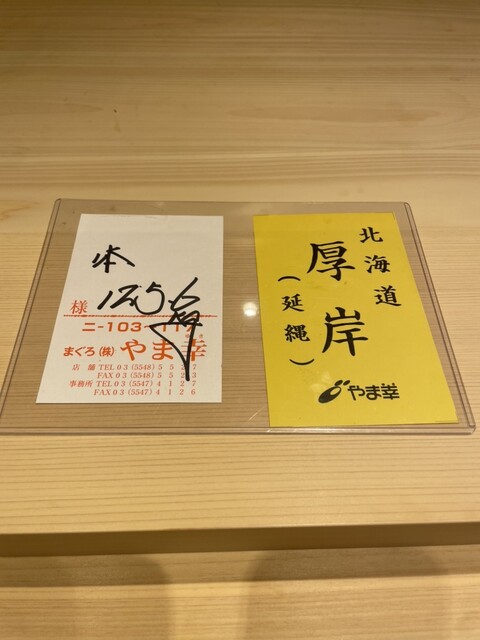 本
125.6
様
まぐろ(株)やま幸
店 舗 TEL 03 (5548) 5 5 2 7
FAX 03 (5548) 5 5 2 3
事務所 TEL 03 (5547) 4 1 2 7
FAX 03 (5547) 4 1 2 6
北海道
厚岸
(延縄)
やま幸